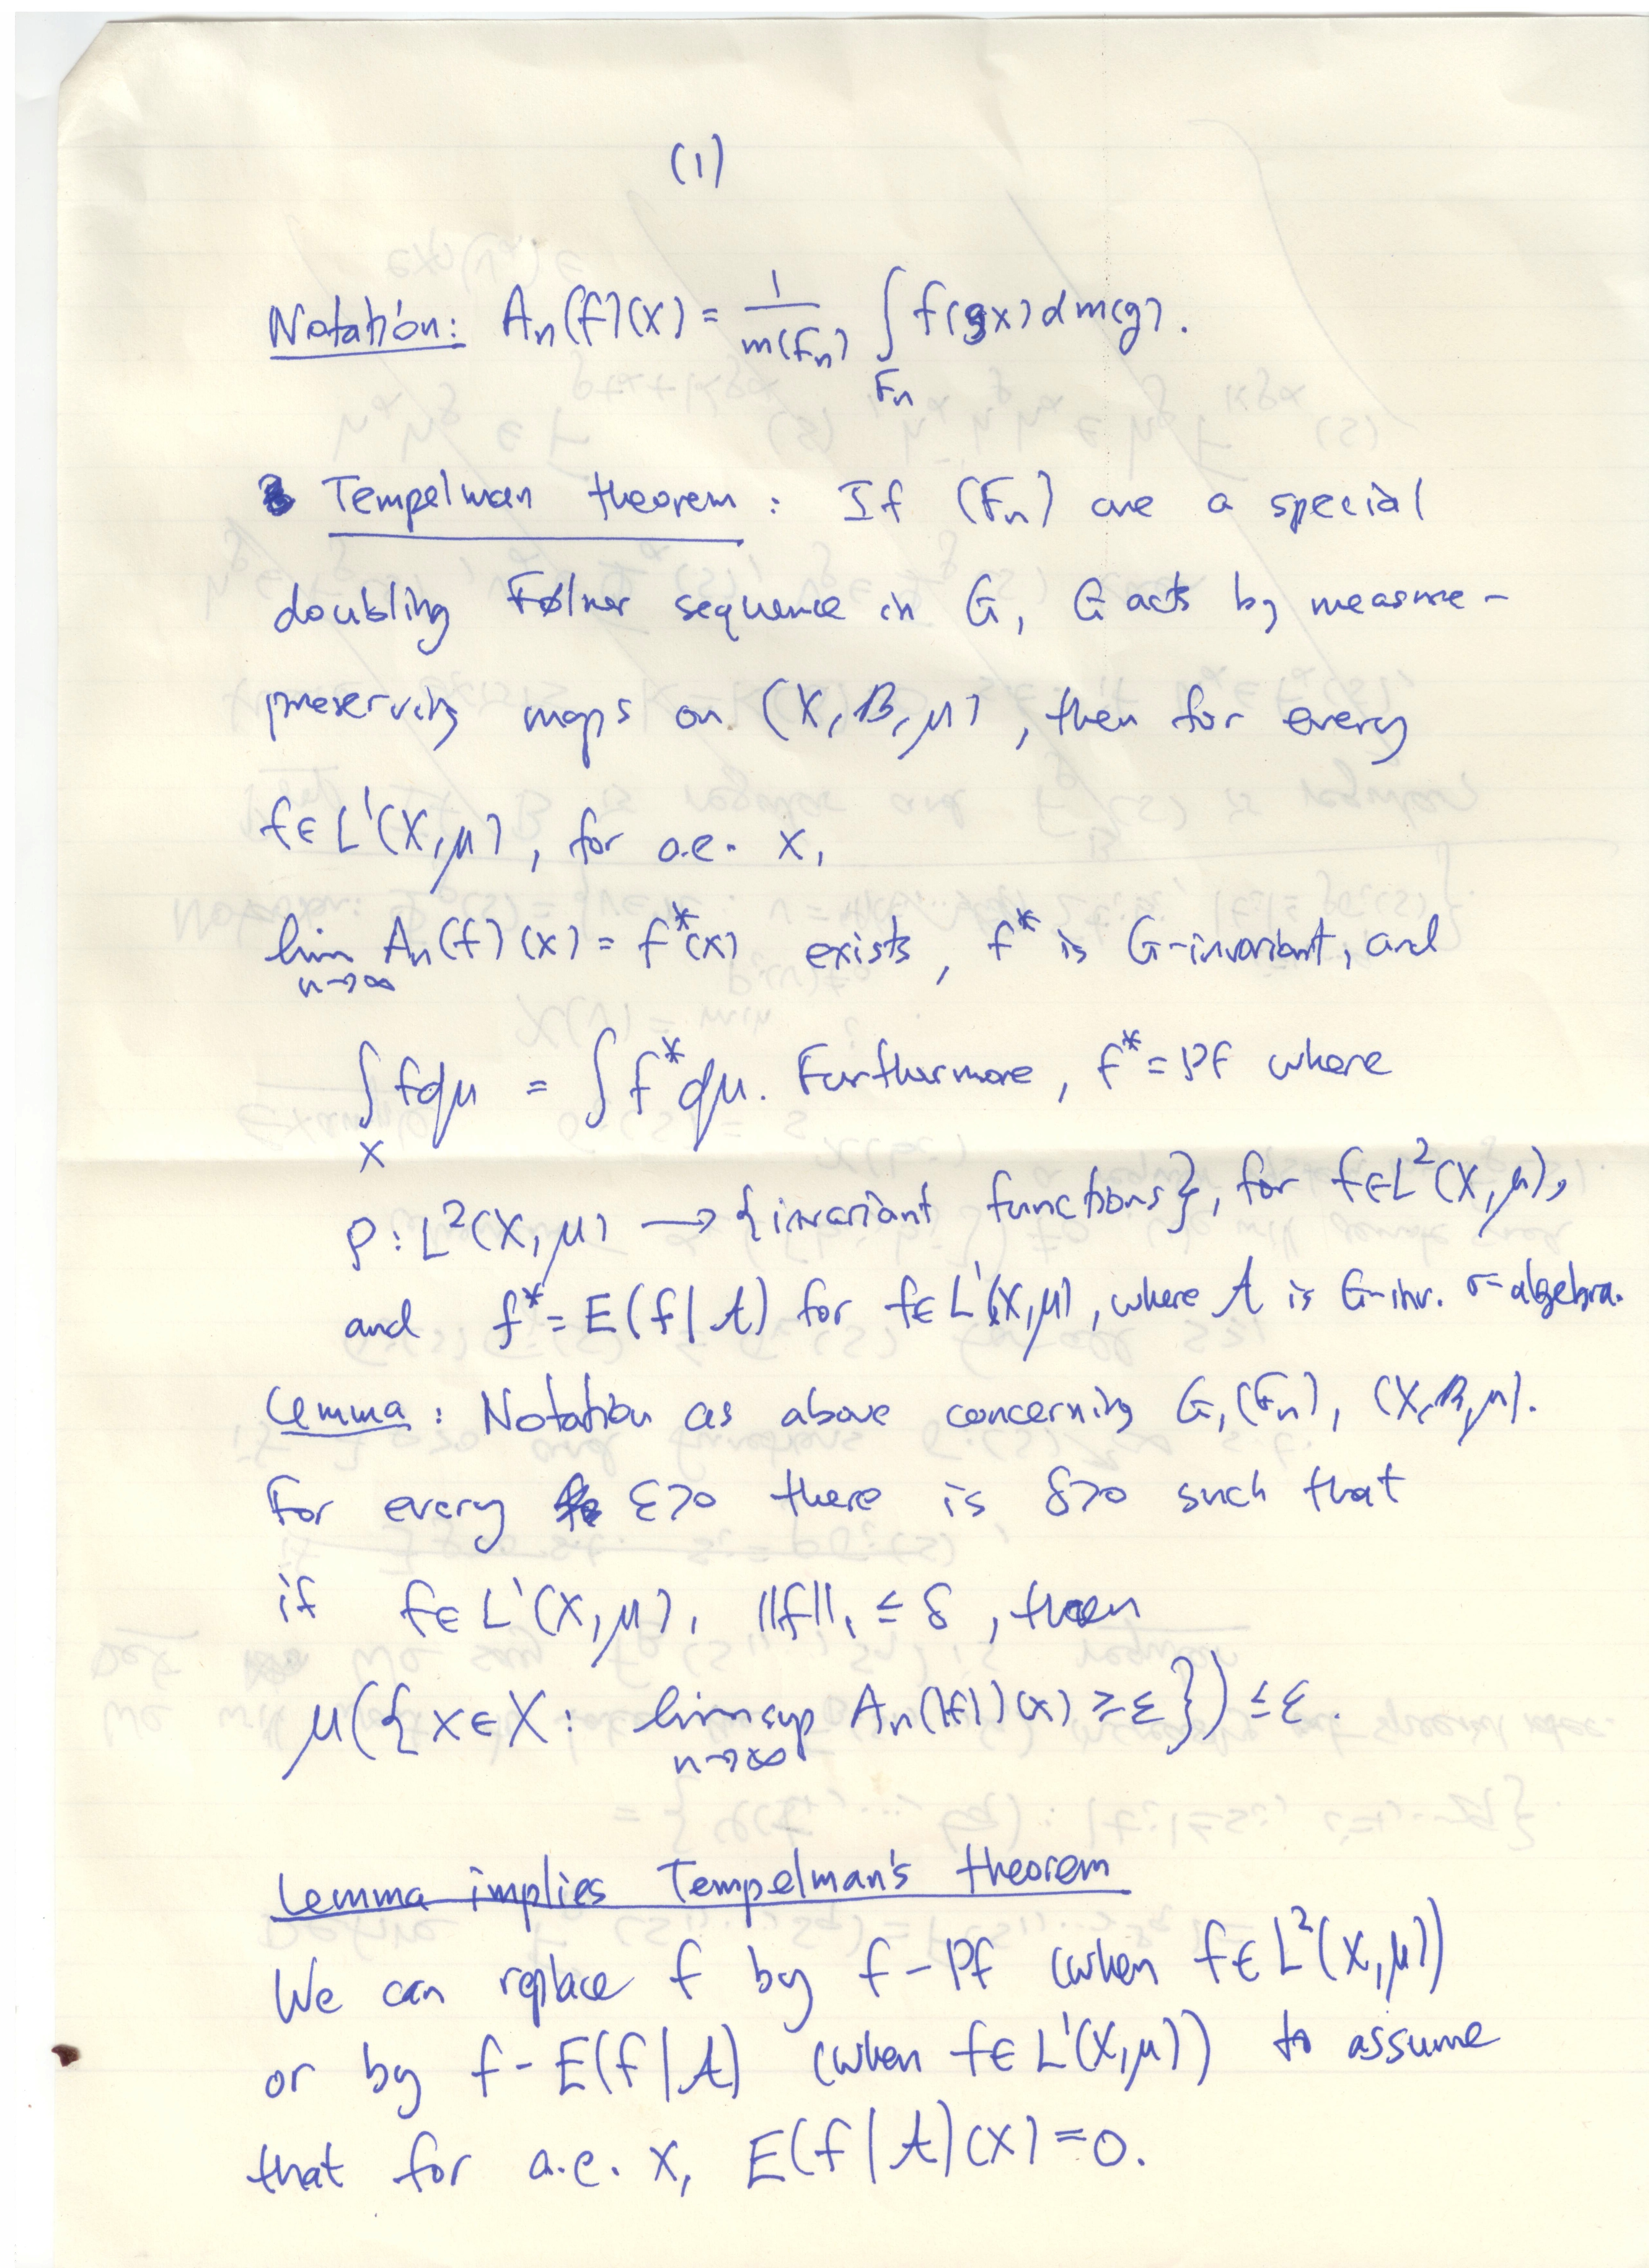 (1)
Notation: Aₙ(f)(x) = 1/m(Fₙ) ∫_{Fₙ} f(gx) dm(g).
Tempelman theorem: If (Fₙ) are a special
doubling Følner sequence in G, G acts by measure-
preserving maps on (X, B, μ), then for every
f ∈ L¹(X, μ), for a.e. x,
lim_{n→∞} Aₙ(f)(x) = f*(x) exists, f* is G-invariant, and
∫_X f dμ = ∫ f* dμ. Furthermore, f* = Pf where
P: L²(X, μ) → {invariant functions}, for f ∈ L²(X, μ),
and f* = E(f | A) for f ∈ L¹(X, μ), where A is G-inv. σ-algebra.
Lemma: Notation as above concerning G, (Fₙ), (X, B, μ).
For every ε>0 there is δ>0 such that
if f ∈ L¹(X, μ), ‖f‖₁ ≤ δ, then
μ({x ∈ X: limsup_{n→∞} Aₙ(|f|)(x) ≥ ε}) ≤ ε.
Lemma implies Tempelman's theorem
We can replace f by f - Pf (when f ∈ L²(X, μ))
or by f - E(f | A) (when f ∈ L¹(X, μ)) to assume
that for a.e. x, E(f | A)(x) = 0.